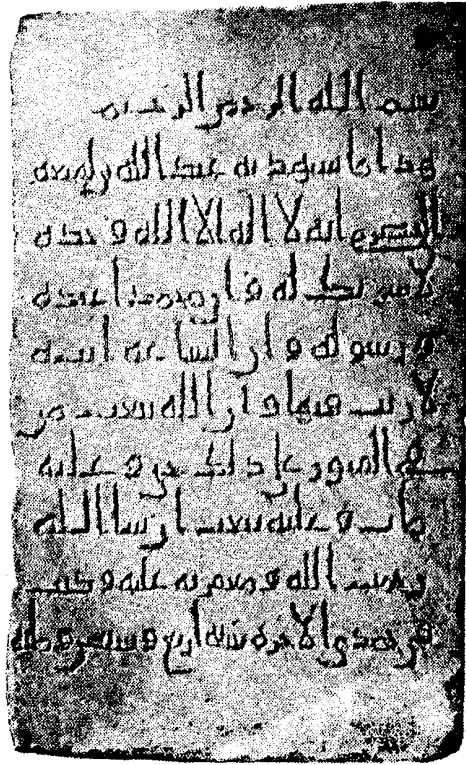 بسم الله الرحمن الرحيم
هذا ما شهد به عبد الله بن لهيعة
الحضرمي انه لا اله الا الله وحده
لا شريك له وان محمدا عبده
ورسوله وان الساعة اتية
لا ريب فيها وان الله يبعث من
في القبور على ذلك حيي وعليه
مات وعليه يبعث ان شا الله
رحمت الله ومغفرته عليه وكتب
في جمدى الاخرة سنة اربع وسبعين ومائة